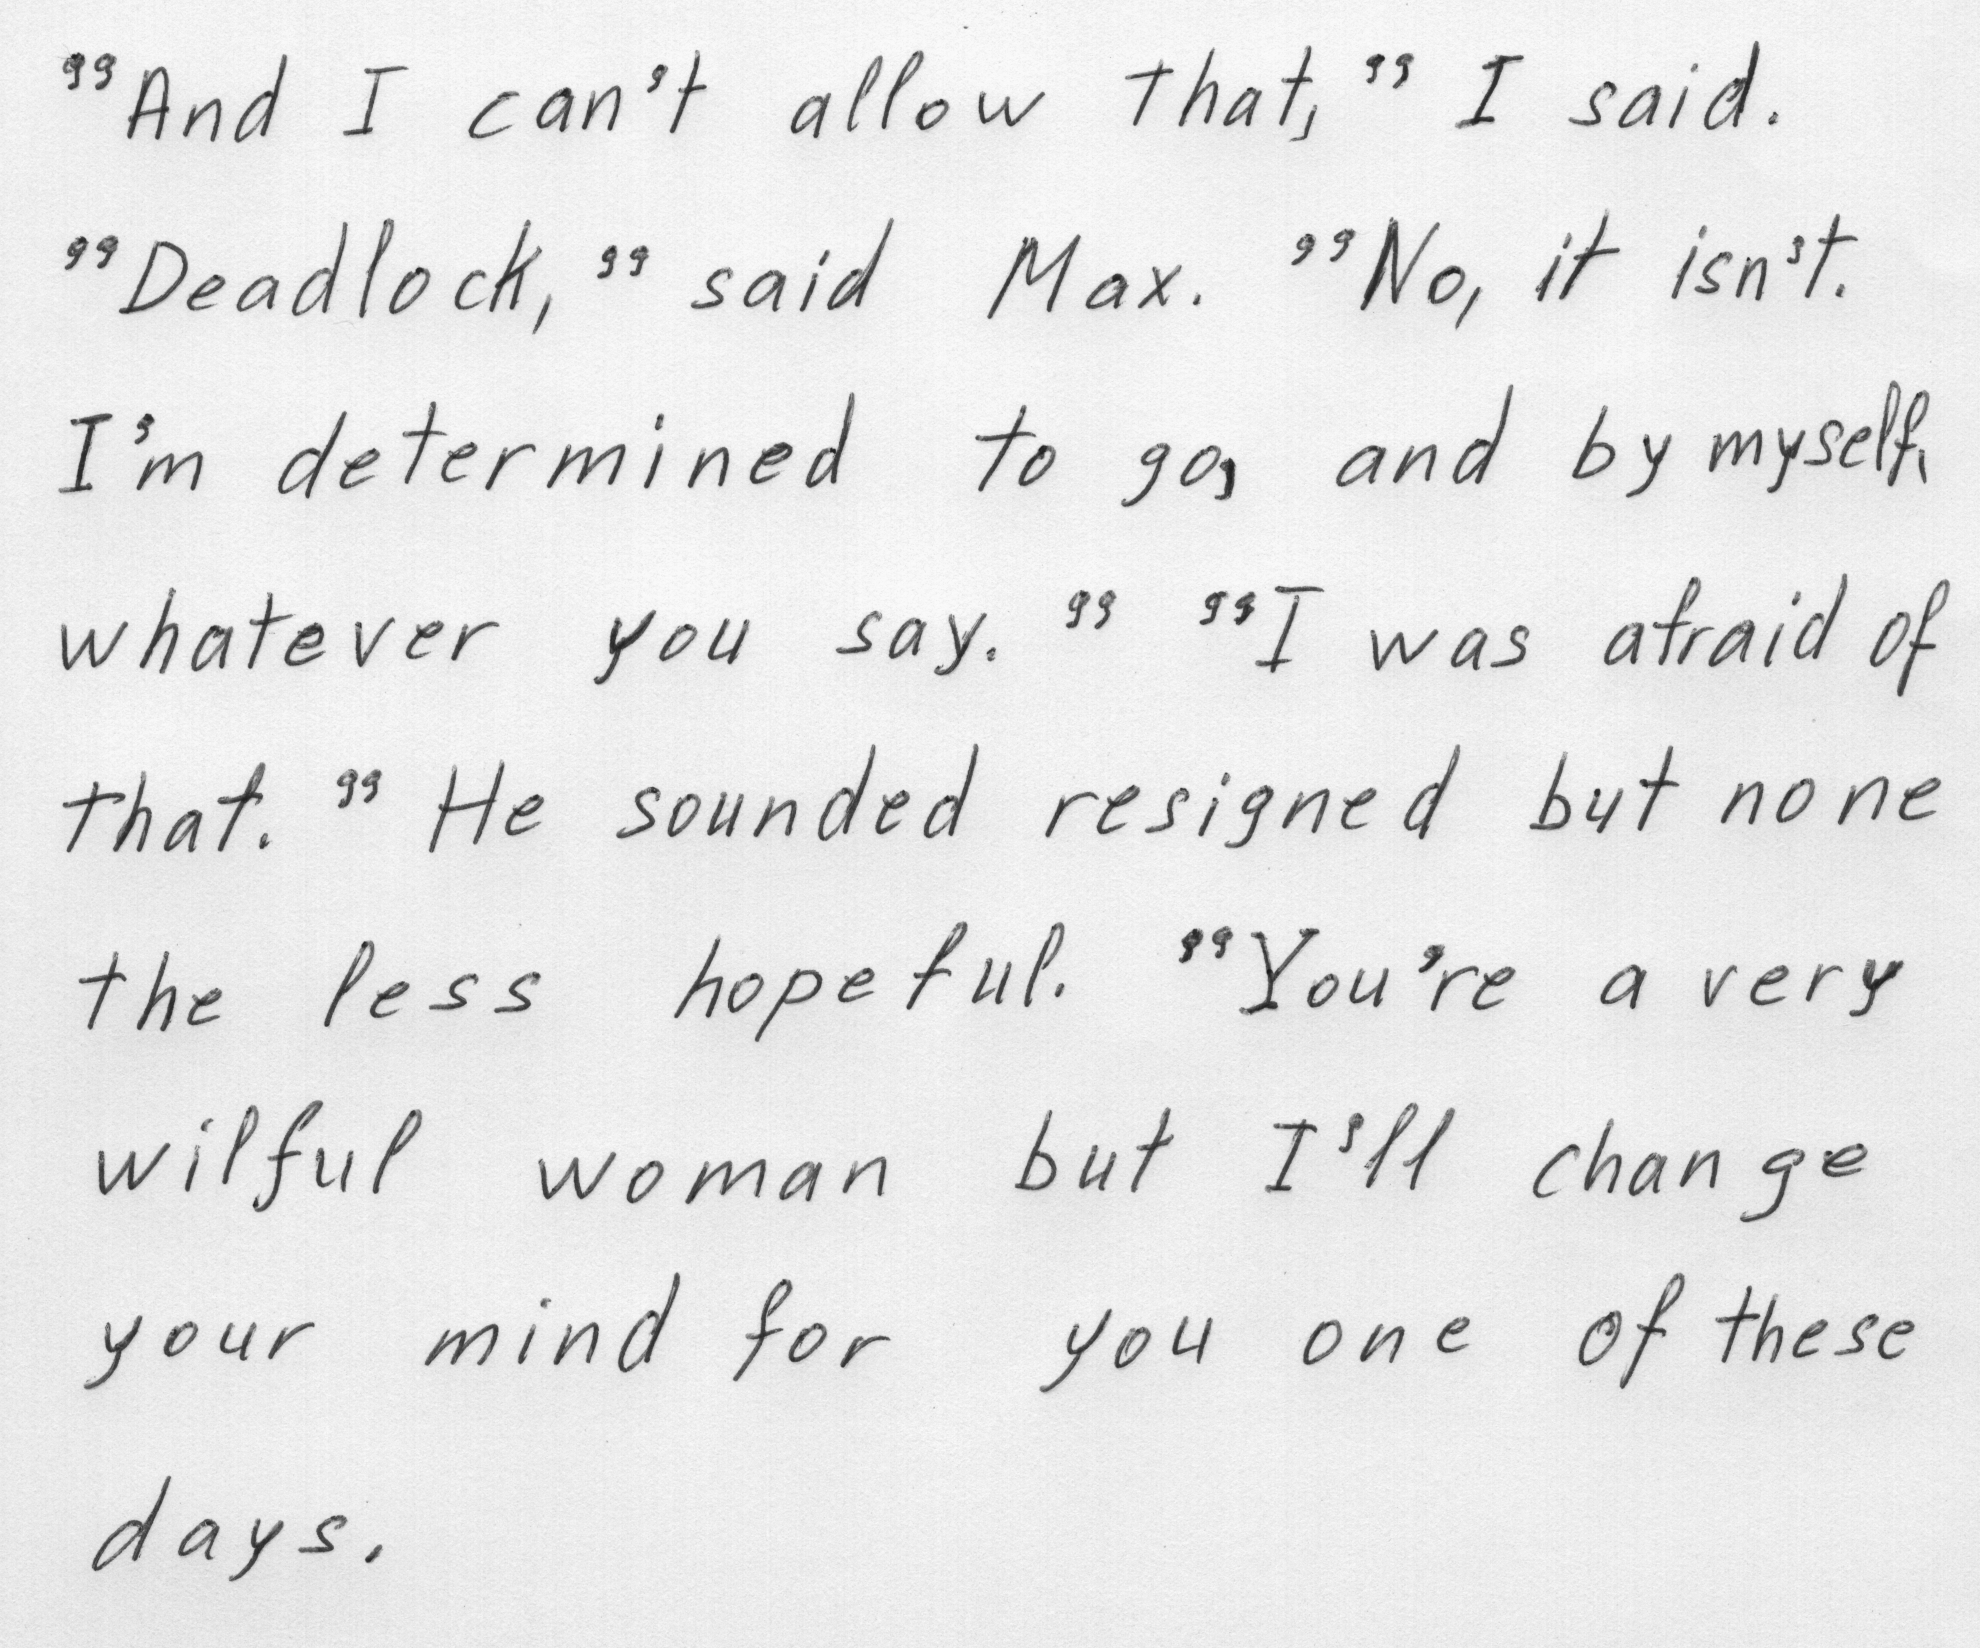 "And I can't allow that," I said.
"Deadlock," said Max. "No, it isn't.
I'm determined to go, and by myself,
whatever you say." "I was afraid of
that." He sounded resigned but none
the less hopeful. "You're a very
wilful woman but I'll change
your mind for you one of these
days.